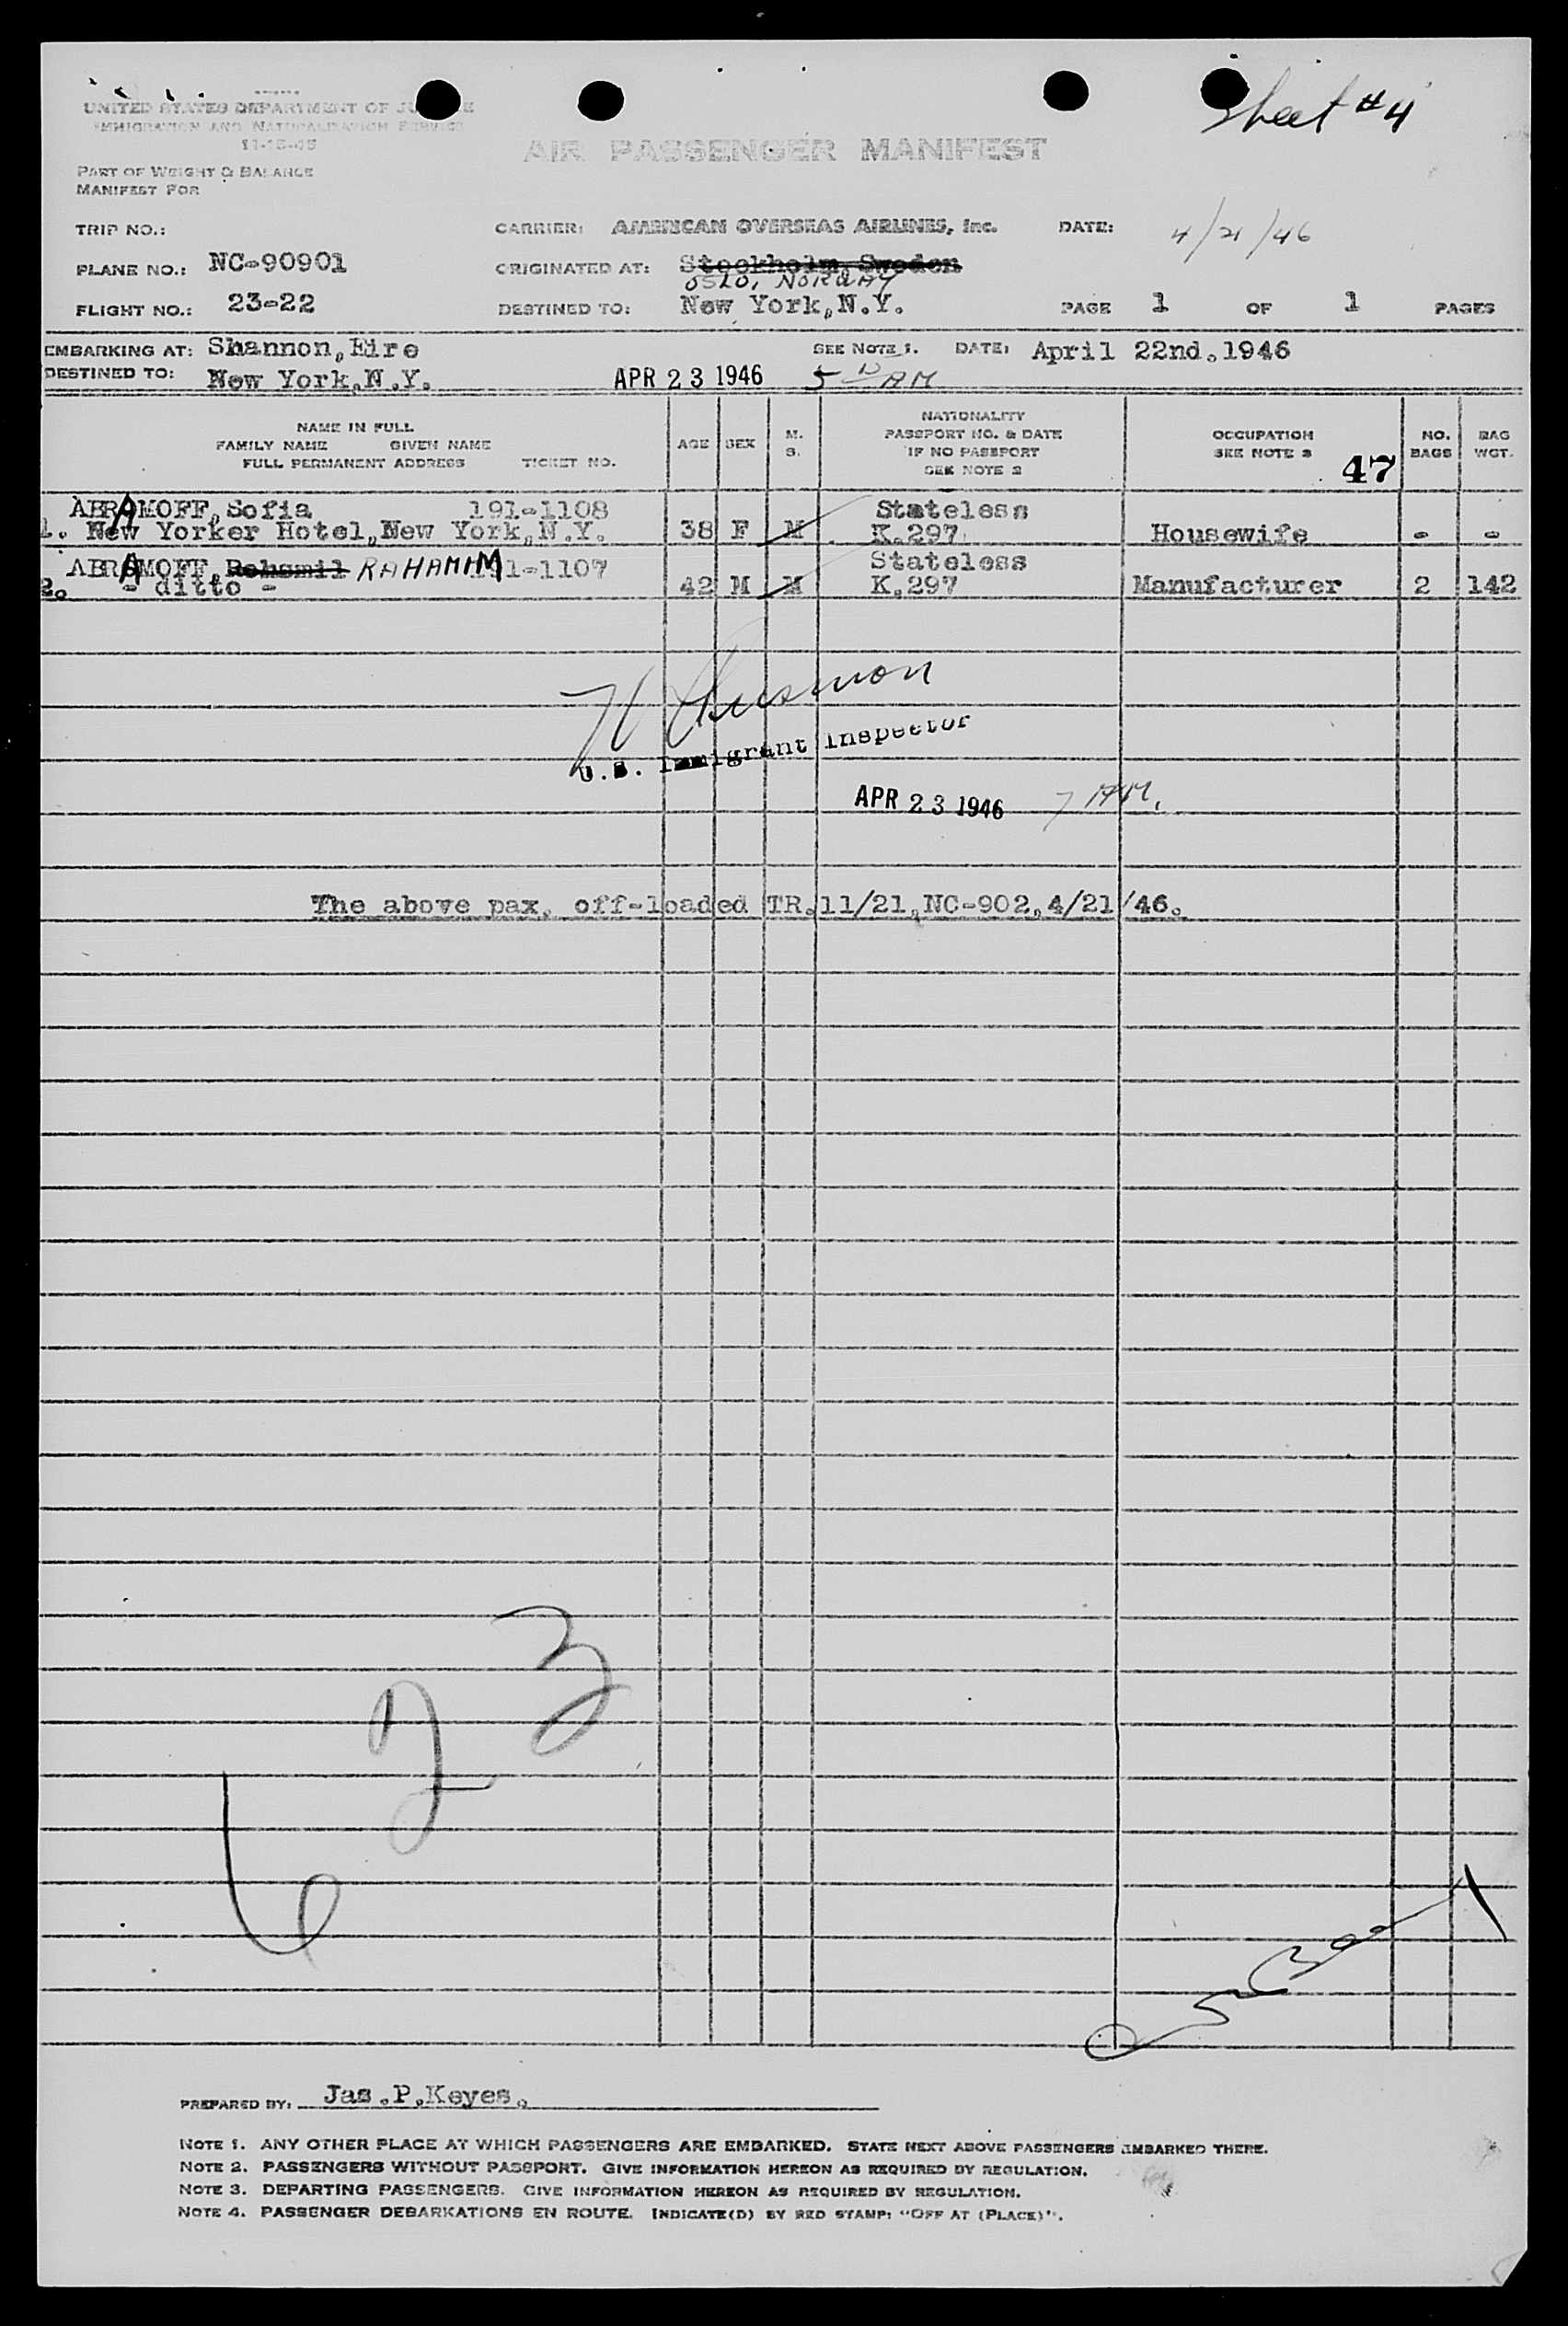 Sheet #4
UNITED STATES DEPARTMENT OF JUSTICE
IMMIGRATION AND NATURALIZATION SERVICE
11-15-45
AIR PASSENGER MANIFEST
PART OF WEIGHT & BALANCE
MANIFEST FOR
TRIP NO.: CARRIER: AMERICAN OVERSEAS AIRLINES, Inc. DATE: 4/21/46
PLANE NO.: NC-90901 ORIGINATED AT: Stockholm, Sweden
OSLO, NORWAY
FLIGHT NO.: 23-22 DESTINED TO: New York,N.Y. PAGE 1 OF 1 PAGES
EMBARKING AT: Shannon,Eire SEE NOTE 1. DATE: April 22nd.1946
DESTINED TO: New York,N.Y. APR 23 1946 5 AM
NAME IN FULL
FAMILY NAME GIVEN NAME
FULL PERMANENT ADDRESS TICKET NO.
AGE SEX M. S.
NATIONALITY
PASSPORT NO. & DATE
IF NO PASSPORT
SEE NOTE 2
OCCUPATION
SEE NOTE 3
47
NO. BAGS
BAG WGT.
ABRAMOFF,Sofia 191-1108 Stateless
1. New Yorker Hotel,New York,N.Y. 38 F M K.297 Housewife - -
ABRAMOFF, RAHAMIM 191-1107 Stateless
2. - ditto - 42 M M K.297 Manufacturer 2 142
U.S. Immigrant Inspector
APR 23 1946 7 AM.
The above pax. off-loaded TR.11/21,NC-902,4/21/46.
623
PREPARED BY: Jas.P.Keyes.
NOTE 1. ANY OTHER PLACE AT WHICH PASSENGERS ARE EMBARKED. STATE NEXT ABOVE PASSENGERS EMBARKED THERE.
NOTE 2. PASSENGERS WITHOUT PASSPORT. GIVE INFORMATION HEREON AS REQUIRED BY REGULATION.
NOTE 3. DEPARTING PASSENGERS. GIVE INFORMATION HEREON AS REQUIRED BY REGULATION.
NOTE 4. PASSENGER DEBARKATIONS EN ROUTE. INDICATE(D) BY RED STAMP: "OFF AT (PLACE)".